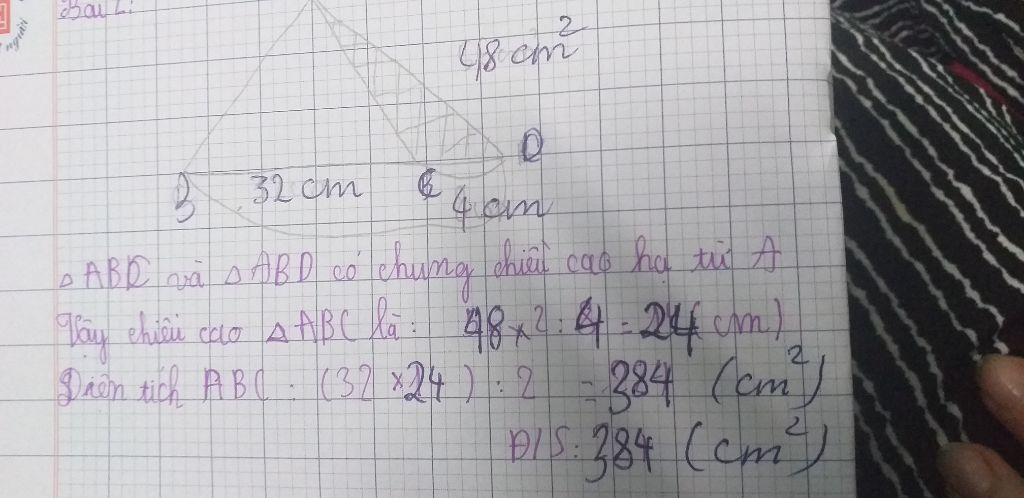 người
Bài 2:
48 cm²
D
B 32 cm C 4 cm
△ ABC và △ ABD có chung chiều cao hạ từ A
Vậy chiều cao △ ABC là: 48 x 2 : 4 = 24 (cm)
Diện tích ABC : (32 x 24) : 2 = 384 (cm²)
Đ/S: 384 (cm²)